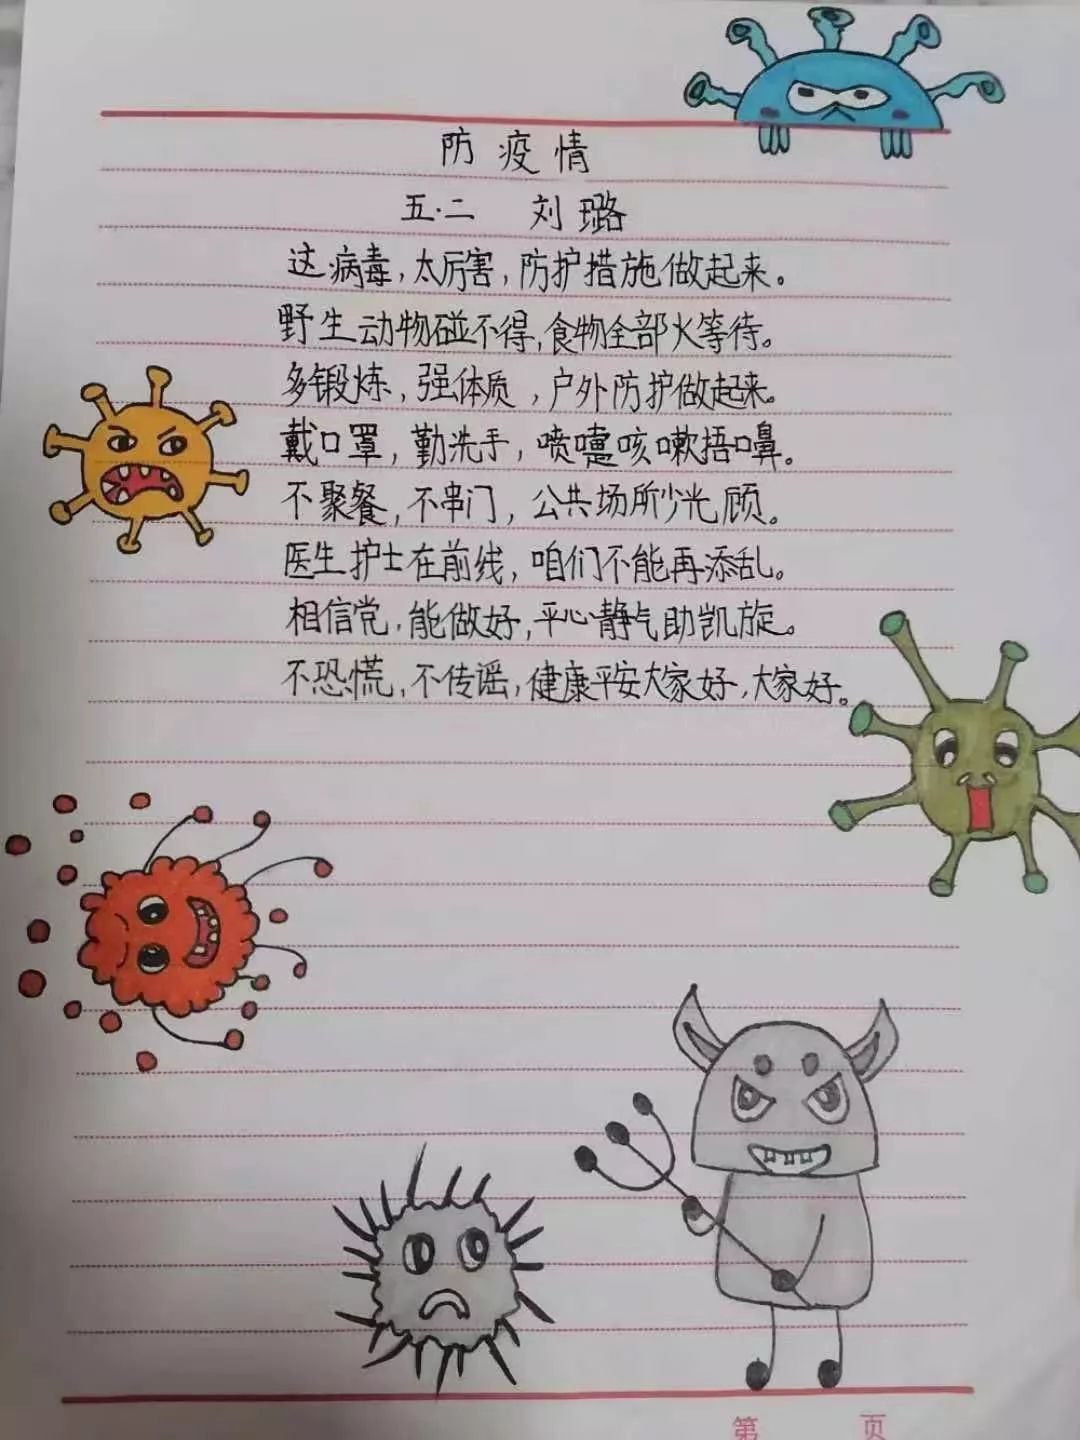 防疫情
五·二 刘璐
这病毒,太厉害,防护措施做起来。
野生动物碰不得,食物全部火等待。
多锻炼,强体质,户外防护做起来。
戴口罩,勤洗手,喷嚏咳嗽捂口鼻。
不聚餐,不串门,公共场所少光顾。
医生护士在前线,咱们不能再添乱。
相信党,能做好,平心静气助凯旋。
不恐慌,不传谣,健康平安大家好,大家好。
第 页